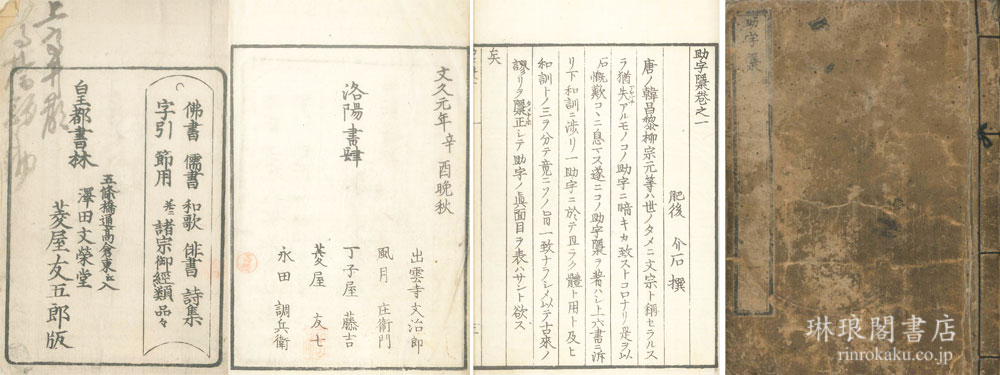 助字檃
助字檃巻之一
肥後 介石 撰
唐ノ韓昌黎柳宗元等ハ世ノタメニ文宗ト稱セラルス
ラ猶失アルモノコノ助字ニ暗キカ致ストコロナリ是ヲ以
石慨歎コヽニ息マス遂ニコノ助字檃ヲ著ハシ上六書ニ泝
リ下和訓ニ渉リ一助字ニ於テ且ラク體ト用ト及ヒ
和訓トノ三ヲ分テ竟ニソノ旨一致ナラシメ以テ古來ノ
謬リヲ檃正シテ助字ノ眞面目ヲ表ハサント欲ス
矣
文久元年辛酉晩秋
洛陽書肆
出雲寺文治郎
風月 庄衛門
丁子屋 藤吉
菱屋 友七
永田 調兵衛
佛書 儒書 和歌 俳書 詩集
字引 節用 并ニ諸宗御經類 品々
皇都書林
五條橋通高倉東エ入
澤田文榮堂
菱屋友五郎版
琳琅閣書店
rinrokaku.co.jp